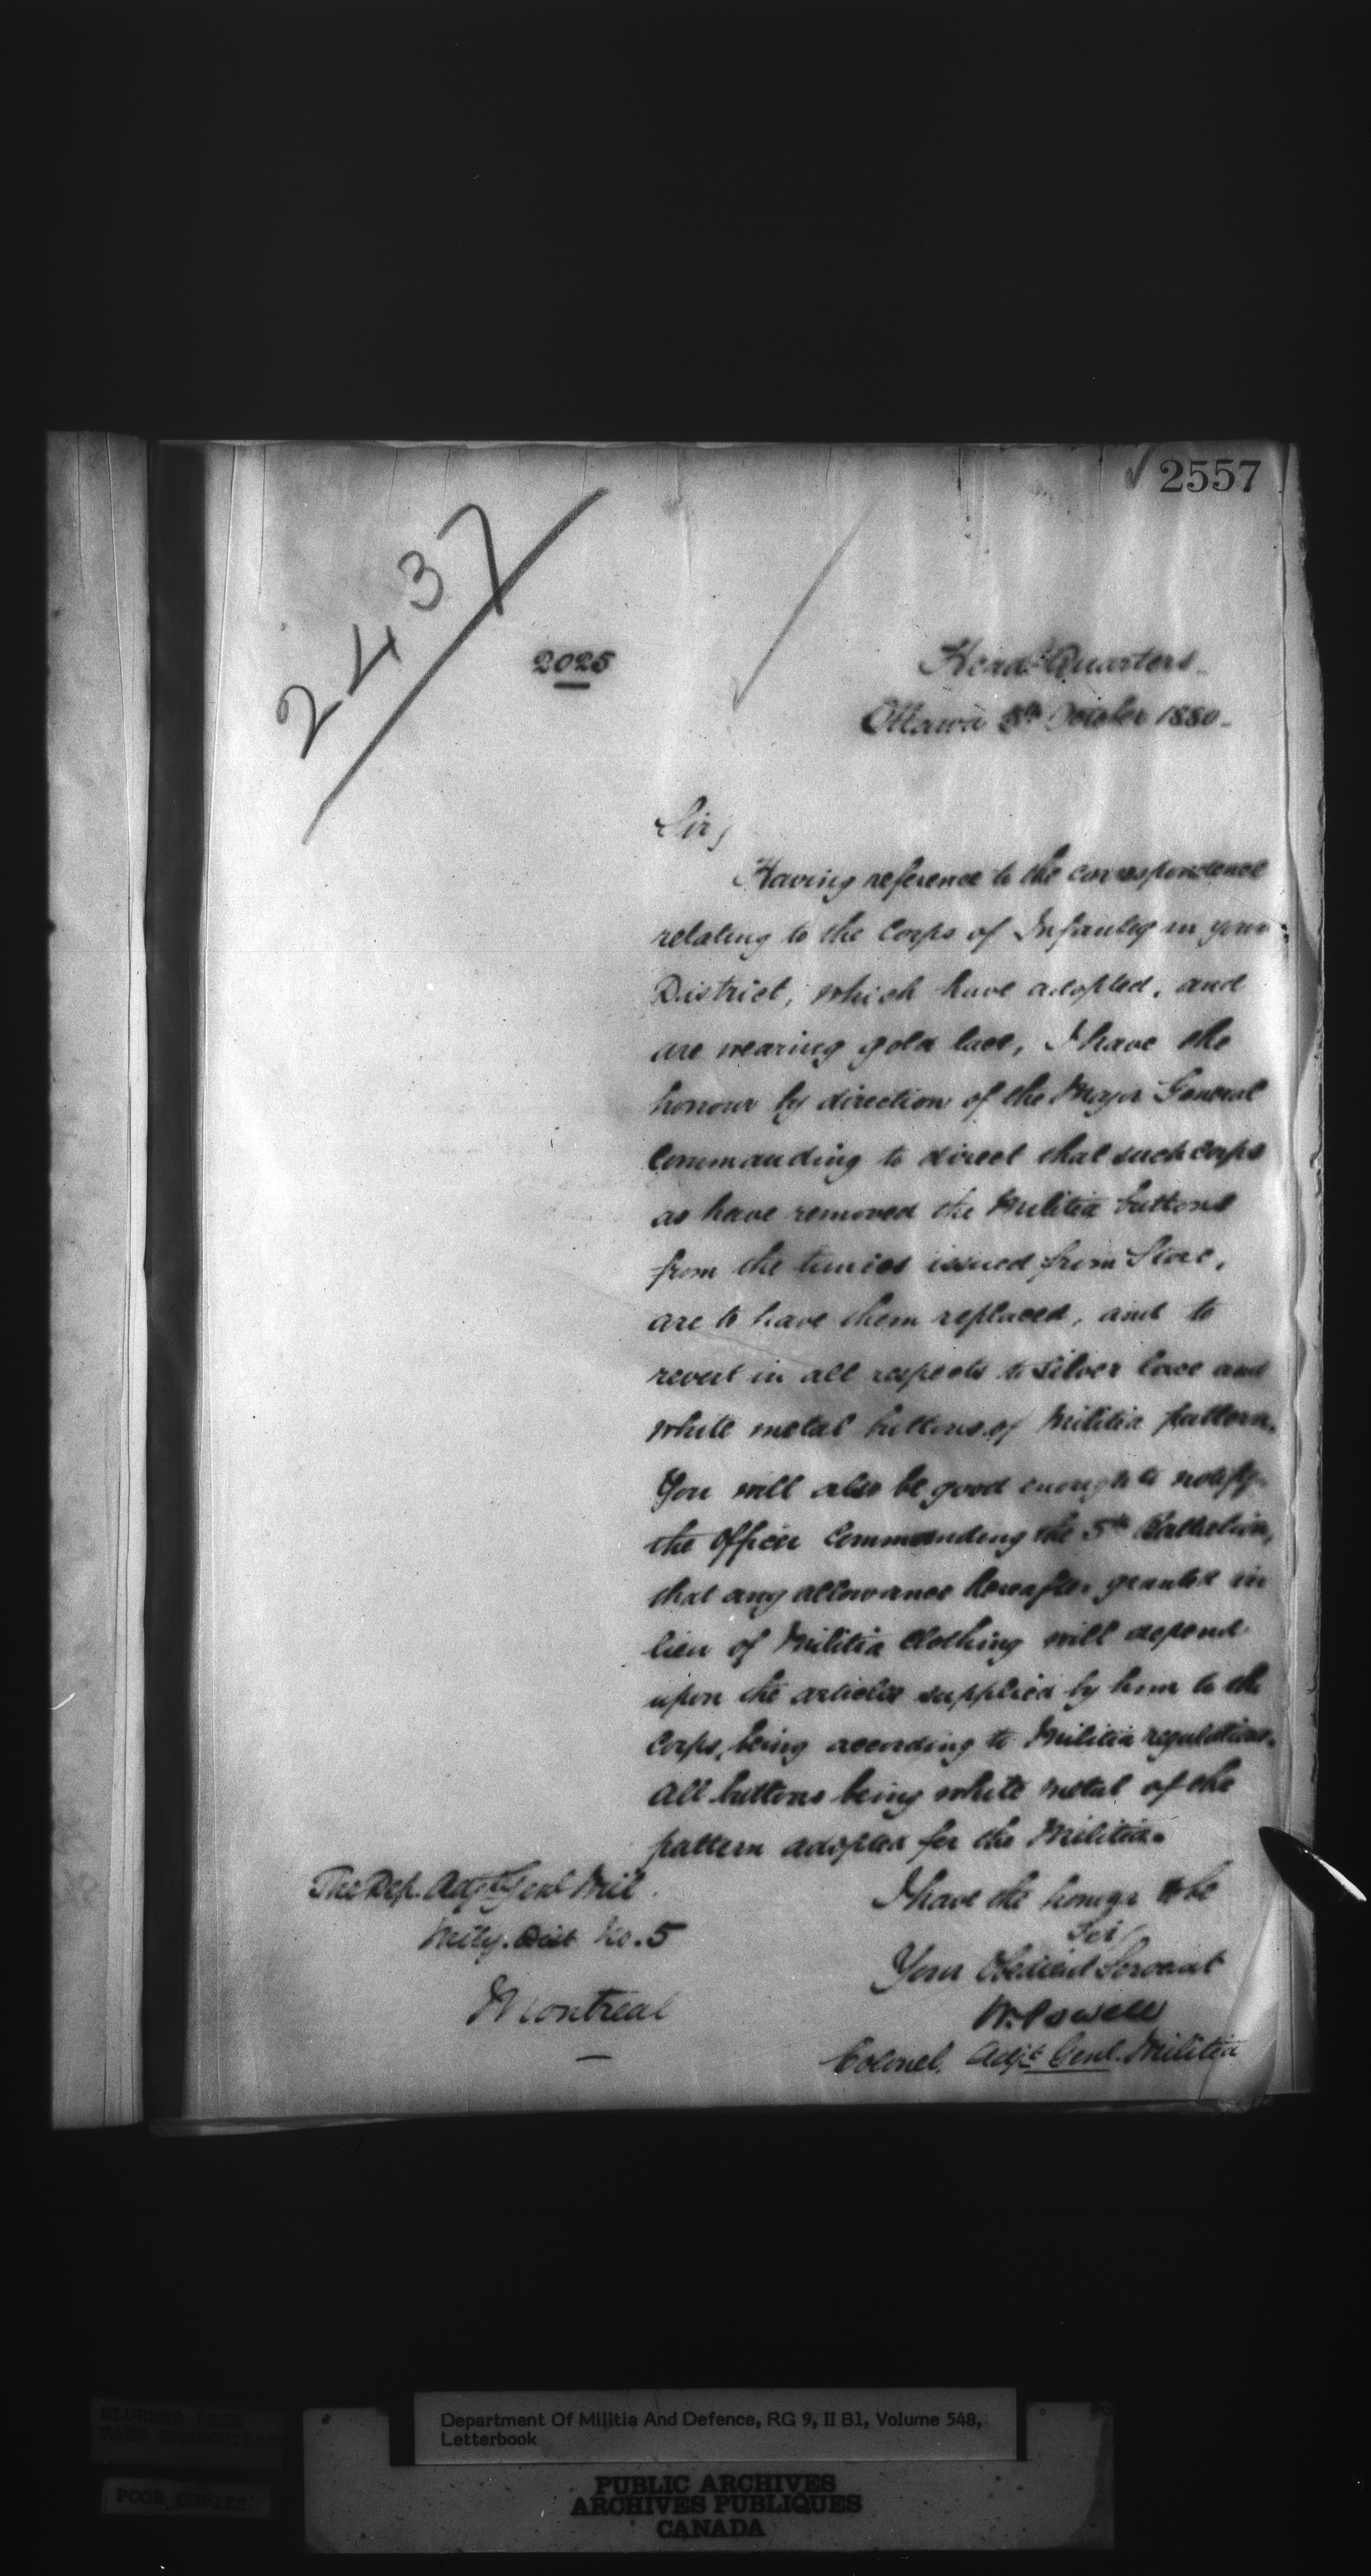 2557
2437
2025
Head Quarters
Ottawa 8th October 1880
Sir,
Having reference to the correspondence
relating to the Corps of Infantry in your
District, which have adopted, and
are wearing gold lace, I have the
honour by direction of the Major General
Commanding to direct that such corps
as have removed the Militia buttons
from the tunics issued from Store,
are to have them replaced, and to
revert in all respects to silver lace and
white metal buttons of Militia pattern.
You will also be good enough to notify
the Officer Commanding the 5th Battalion,
that any allowance hereafter granted in
lieu of Militia Clothing will depend
upon the articles supplied by him to the
Corps, being according to Militia regulations.
All buttons being white metal of the
pattern adopted for the Militia.
I have the honour to be
Sir,
Your Obedient Servant
W. Powell
Colonel. Adjt. Genl. Militia
The Dep. Adjt Genl Mil
Mily. Dist No. 5
Montreal
BLURRED PAGE
PAGE EMBROUILLEE
POOR COPIES
Department Of Militia And Defence, RG 9, II B1, Volume 548,
Letterbook
PUBLIC ARCHIVES
ARCHIVES PUBLIQUES
CANADA